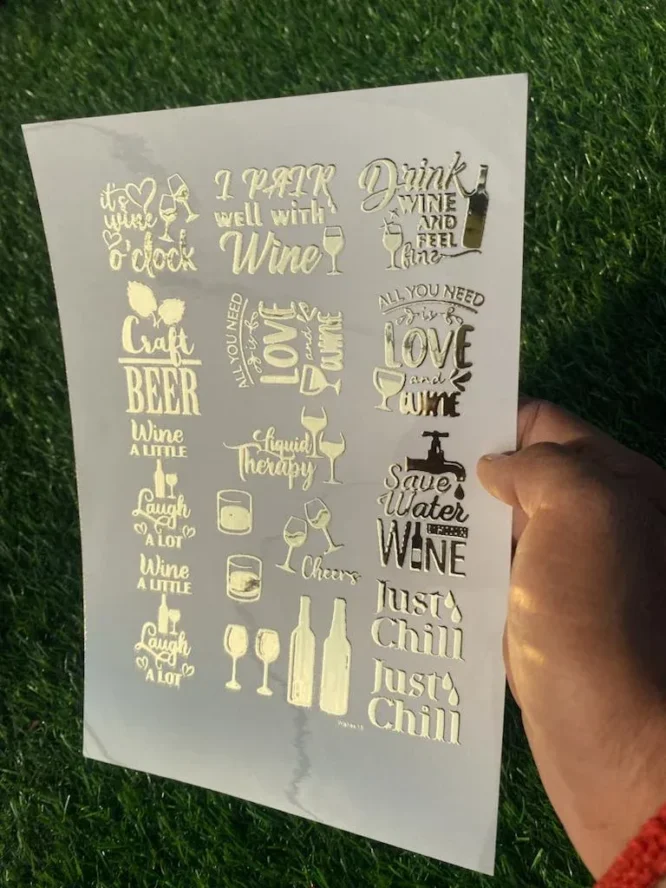 it's
wine
o'clock
I PAIR
well with
Wine
Drink
WINE
AND
FEEL
fine
Craft
BEER
ALL YOU NEED
is
LOVE
and
WINE
ALL YOU NEED
is
LOVE
and
WINE
Wine
A LITTLE
Laugh
A LOT
Liquid
Therapy
Save
Water
WINE
Wine
A LITTLE
Laugh
A LOT
Cheers
Just
Chill
Just
Chill